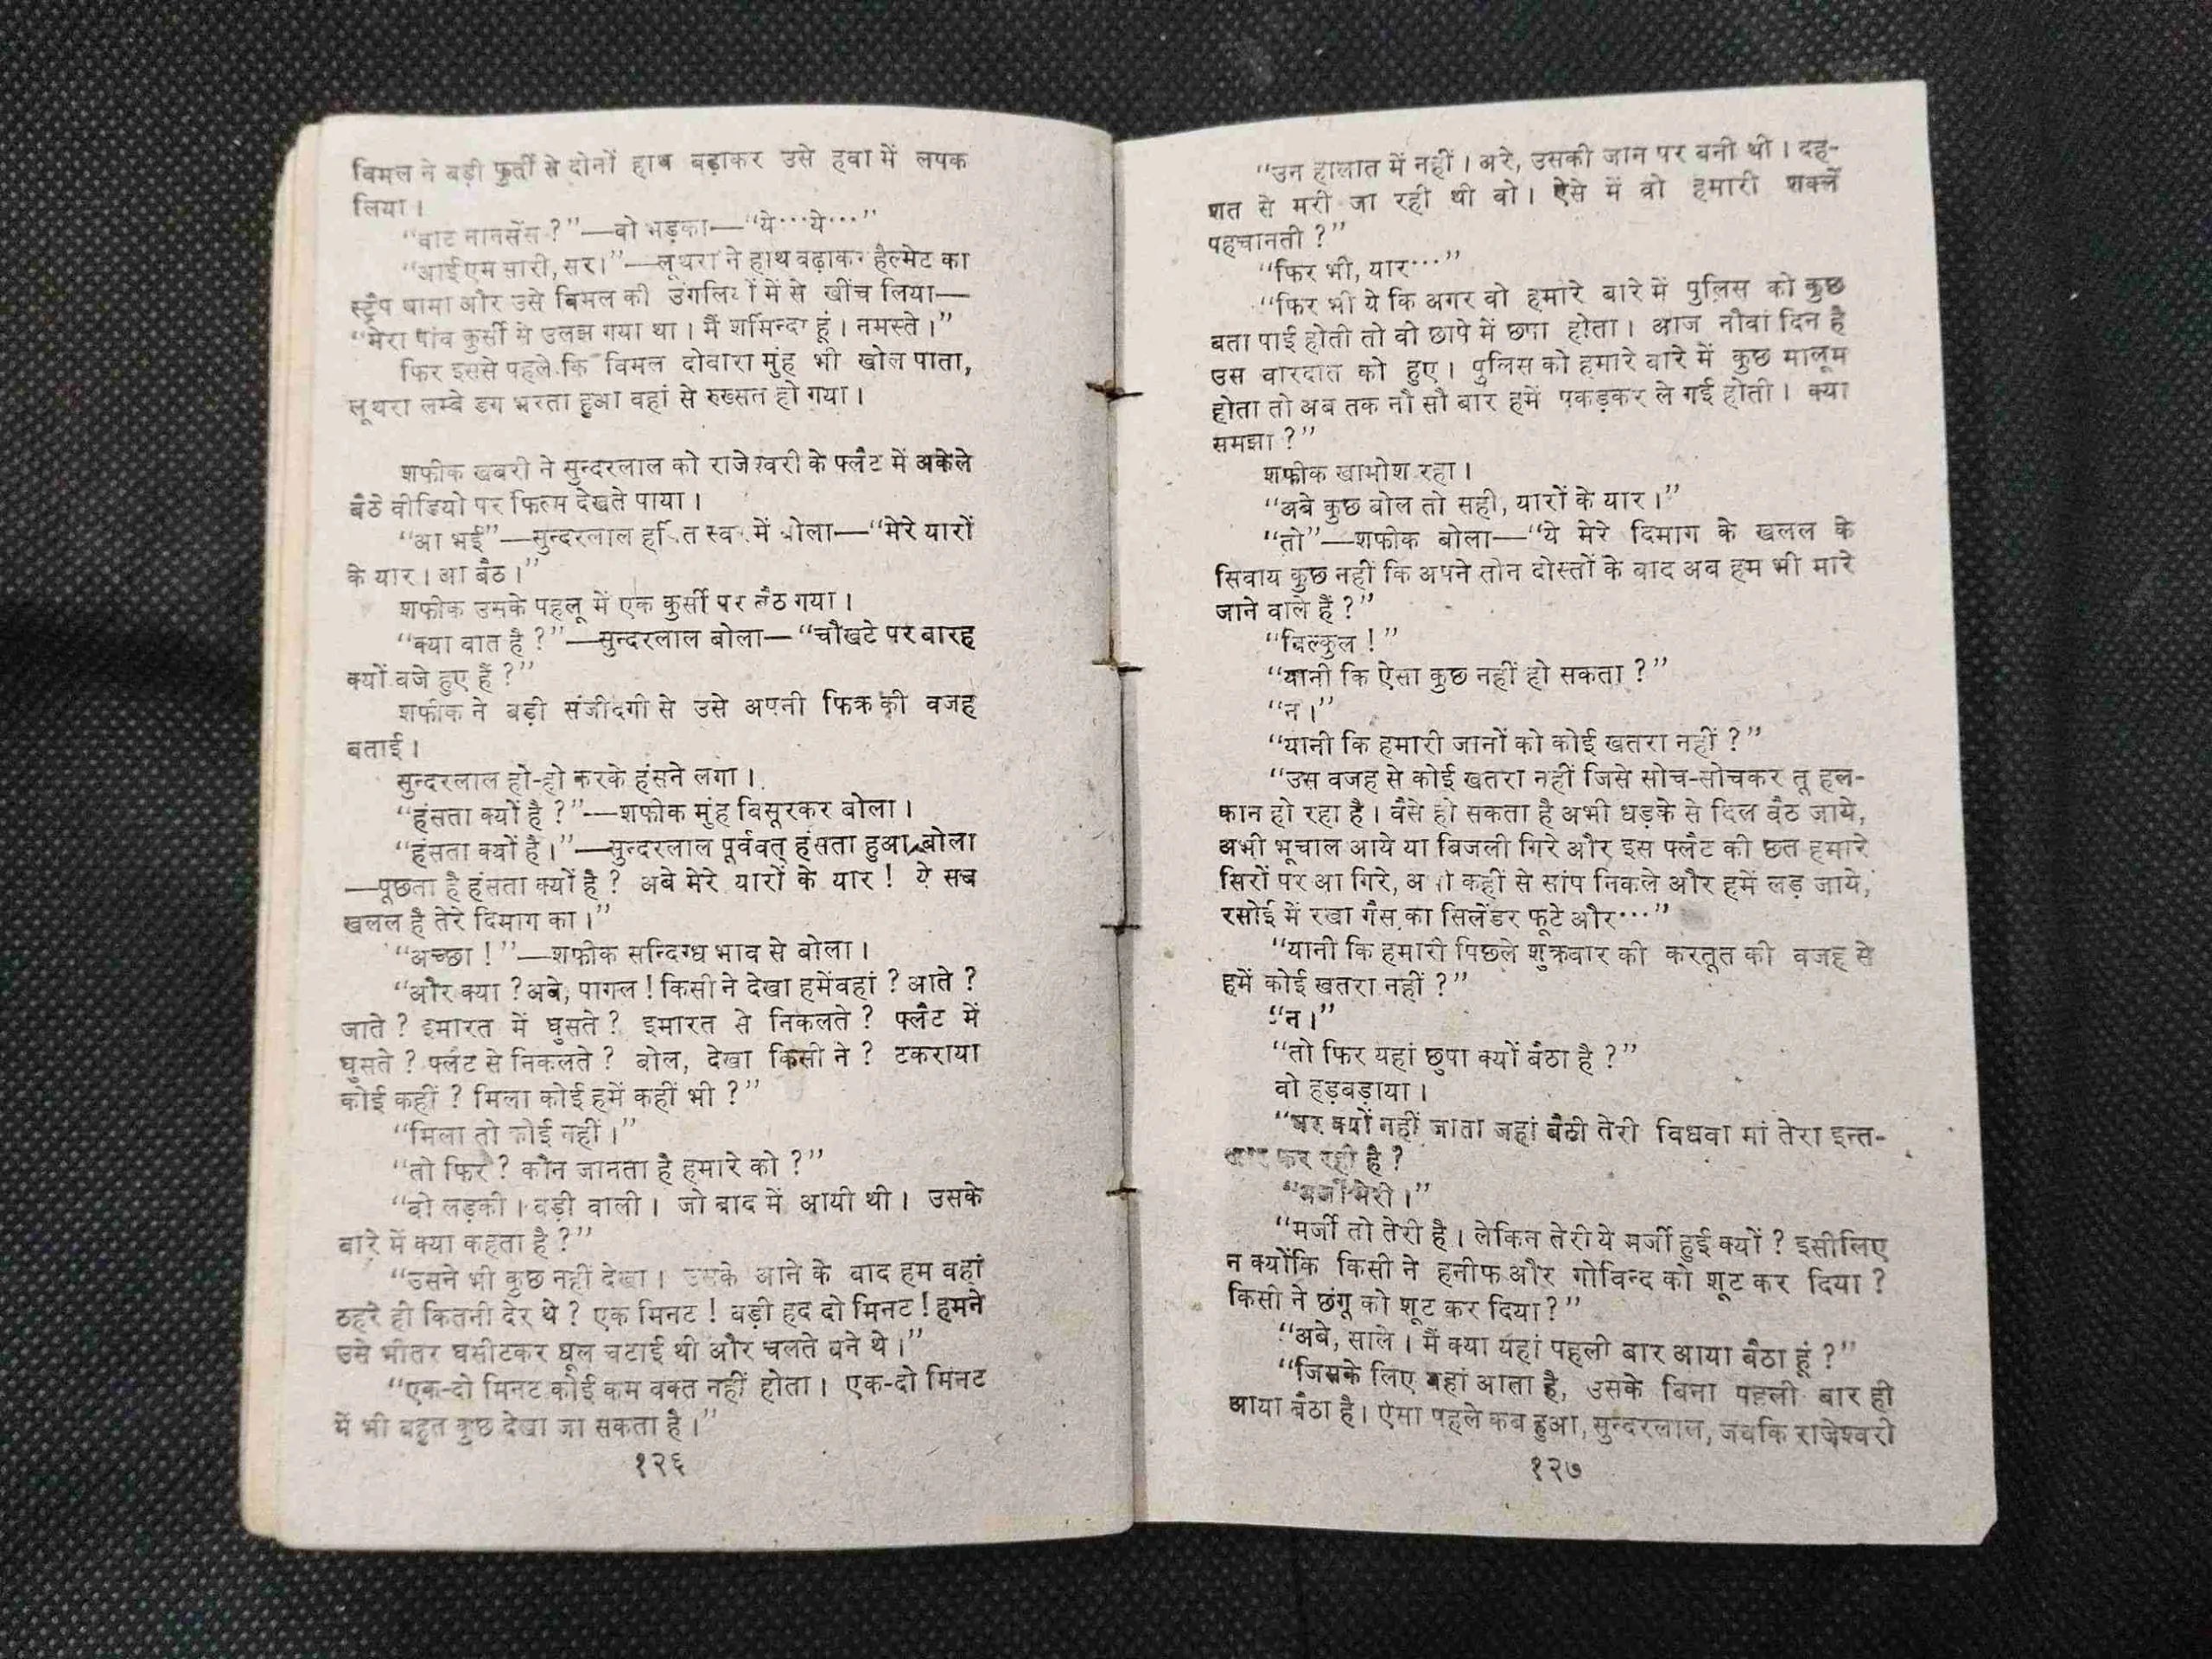 विमल ने बड़ी फुर्ती से दोनों हाथ बढ़ाकर उसे हवा में लपक
लिया ।
“वाट नानसेंस ?”—वो भड़का—“ये···ये···”
“आई एम सारी, सर।”—लूथरा ने हाथ बढ़ाकर हैल्मेट का
स्ट्रैप थामा और उसे विमल की उंगलियों में से खींच लिया—
“मेरा पांव कुर्सी से उलझ गया था । मैं शर्मिन्दा हूं । नमस्ते ।”
फिर इससे पहले कि विमल दोबारा मुंह भी खोल पाता,
लूथरा लम्बे डग भरता हुआ वहां से रुख्सत हो गया ।
शफीक खबरी ने सुन्दरलाल को राजेश्वरी के फ्लैट में अकेले
बैठे वीडियो पर फिल्म देखते पाया ।
“आ भई”—सुन्दरलाल हर्षित स्वर में बोला—“मेरे यारों
के यार । आ बैठ ।”
शफीक उसके पहलू में एक कुर्सी पर बैठ गया ।
“क्या बात है ?”—सुन्दरलाल बोला—“चौखटे पर बारह
क्यों बजे हुए हैं ?”
शफीक ने बड़ी संजीदगी से उसे अपनी फिक्र की वजह
बताई ।
सुन्दरलाल हो-हो करके हंसने लगा ।
“हंसता क्यों है ?”—शफीक मुंह बिसूरकर बोला ।
“हंसता क्यों है।”—सुन्दरलाल पूर्ववत् हंसता हुआ बोला
—पूछता है हंसता क्यों है ? अबे मेरे यारों के यार ! ये सब
खलल है तेरे दिमाग का ।”
“अच्छा !”—शफीक सन्दिग्ध भाव से बोला ।
“और क्या ? अबे, पागल ! किसी ने देखा हमें वहां ? आते ?
जाते ? इमारत में घुसते ? इमारत से निकलते ? फ्लैट में
घुसते ? फ्लैट से निकलते ? बोल, देखा किसी ने ? टकराया
कोई कहीं ? मिला कोई हमें कहीं भी ?”
“मिला तो कोई नहीं ।”
“तो फिर ? कौन जानता है हमारे को ?”
“वो लड़की । बड़ी वाली । जो बाद में आयी थी । उसके
बारे में क्या कहता है ?”
“उसने भी कुछ नहीं देखा । उसके आने के बाद हम वहां
ठहरे ही कितनी देर थे ? एक मिनट ! बड़ी हद दो मिनट ! हमने
उसे भीतर घसीटकर धूल चटाई थी और चलते बने थे ।”
“एक-दो मिनट कोई कम वक्त नहीं होता । एक-दो मिनट
में भी बहुत कुछ देखा जा सकता है ।”
१२६
“उन हालात में नहीं । अरे, उसकी जान पर बनी थी । दह-
शत से मरी जा रही थी वो । ऐसे में वो हमारी शक्लें
पहचानती ?”
“फिर भी, यार···”
“फिर भी ये कि अगर वो हमारे बारे में पुलिस को कुछ
बता पाई होती तो वो छापे में छपा होता । आज नौवां दिन है
उस वारदात को हुए । पुलिस को हमारे बारे में कुछ मालूम
होता तो अब तक नौ सौ बार हमें पकड़कर ले गई होती । क्या
समझा ?”
शफीक खामोश रहा ।
“अबे कुछ बोल तो सही, यारों के यार ।”
“तो”—शफीक बोला—“ये मेरे दिमाग के खलल के
सिवाय कुछ नहीं कि अपने तीन दोस्तों के बाद अब हम भी मारे
जाने वाले हैं ?”
“बिल्कुल !”
“यानी कि ऐसा कुछ नहीं हो सकता ?”
“न ।”
“यानी कि हमारी जानों को कोई खतरा नहीं ?”
“उस वजह से कोई खतरा नहीं जिसे सोच-सोचकर तू हल-
कान हो रहा है । वैसे हो सकता है अभी धड़के से दिल बैठ जाये,
अभी भूचाल आये या बिजली गिरे और इस फ्लैट की छत हमारे
सिरों पर आ गिरे, अभी कहीं से सांप निकले और हमें लड़ जाये,
रसोई में रखा गैस का सिलेंडर फूटे और···”
“यानी कि हमारी पिछले शुक्रवार की करतूत की वजह से
हमें कोई खतरा नहीं ?”
“न ।”
“तो फिर यहां छुपा क्यों बैठा है ?”
वो हड़बड़ाया ।
“घर क्यों नहीं जाता जहां बैठी तेरी विधवा मां तेरा इन्त-
जार कर रही है ?
“मर्जी मेरी ।”
“मर्जी तो तेरी है । लेकिन तेरी ये मर्जी हुई क्यों ? इसीलिए
न क्योंकि किसी ने हनीफ और गोविन्द को शूट कर दिया ?
किसी ने छंगू को शूट कर दिया ?”
“अबे, साले । मैं क्या यहां पहली बार आया बैठा हूं ?”
“जिसके लिए यहां आता है, उसके बिना पहली बार ही
आया बैठा है । ऐसा पहले कब हुआ, सुन्दरलाल, जबकि राजेश्वरी
१२७